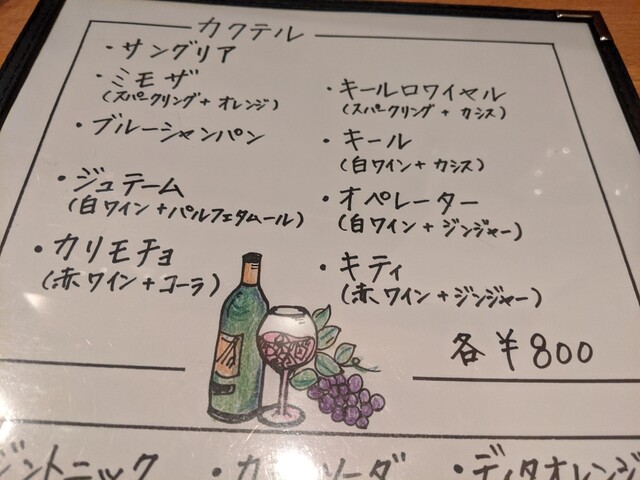 カクテル
・サングリア
・ミモザ
(スパークリング+オレンジ)
・ブルーシャンパン
・ジュテーム
(白ワイン+パルフェタムール)
・カリモチョ
(赤ワイン+コーラ)
・キールロワイヤル
(スパークリング+カシス)
・キール
(白ワイン+カシス)
・オペレーター
(白ワイン+ジンジャー)
・キティ
(赤ワイン+ジンジャー)
各¥800
ジントニック
・ディタオレンジ